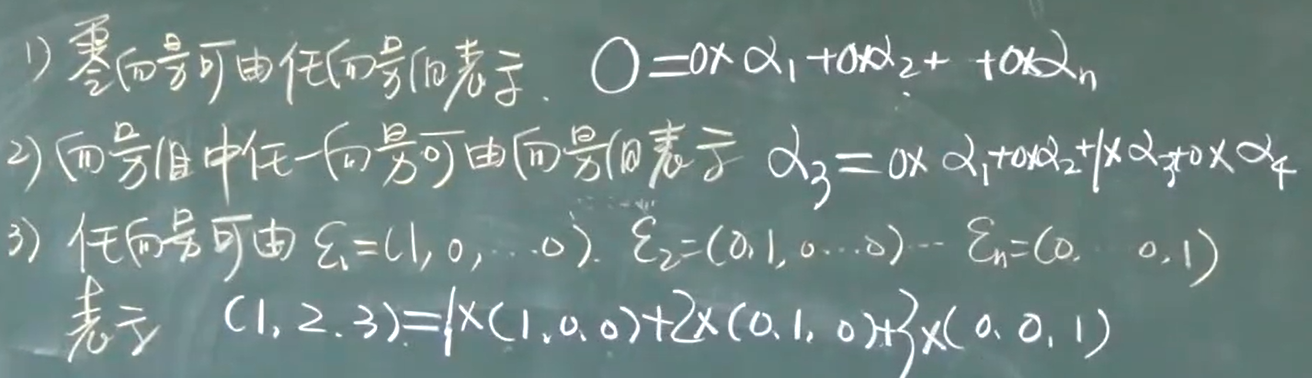 1) 零向量可由任向量组表示. 0=0×α₁+0×α₂+ +0×αₙ
2) 向量组中任一向量可由向量组表示 α₃=0×α₁+0×α₂+1×α₃+0×α₄
3) 任向量可由 ε₁=(1,0,...0). ε₂=(0,1,0...0)... εₙ=(0. 0,1)
表示 (1.2.3)=1×(1.0.0)+2×(0.1.0)+3×(0.0.1)